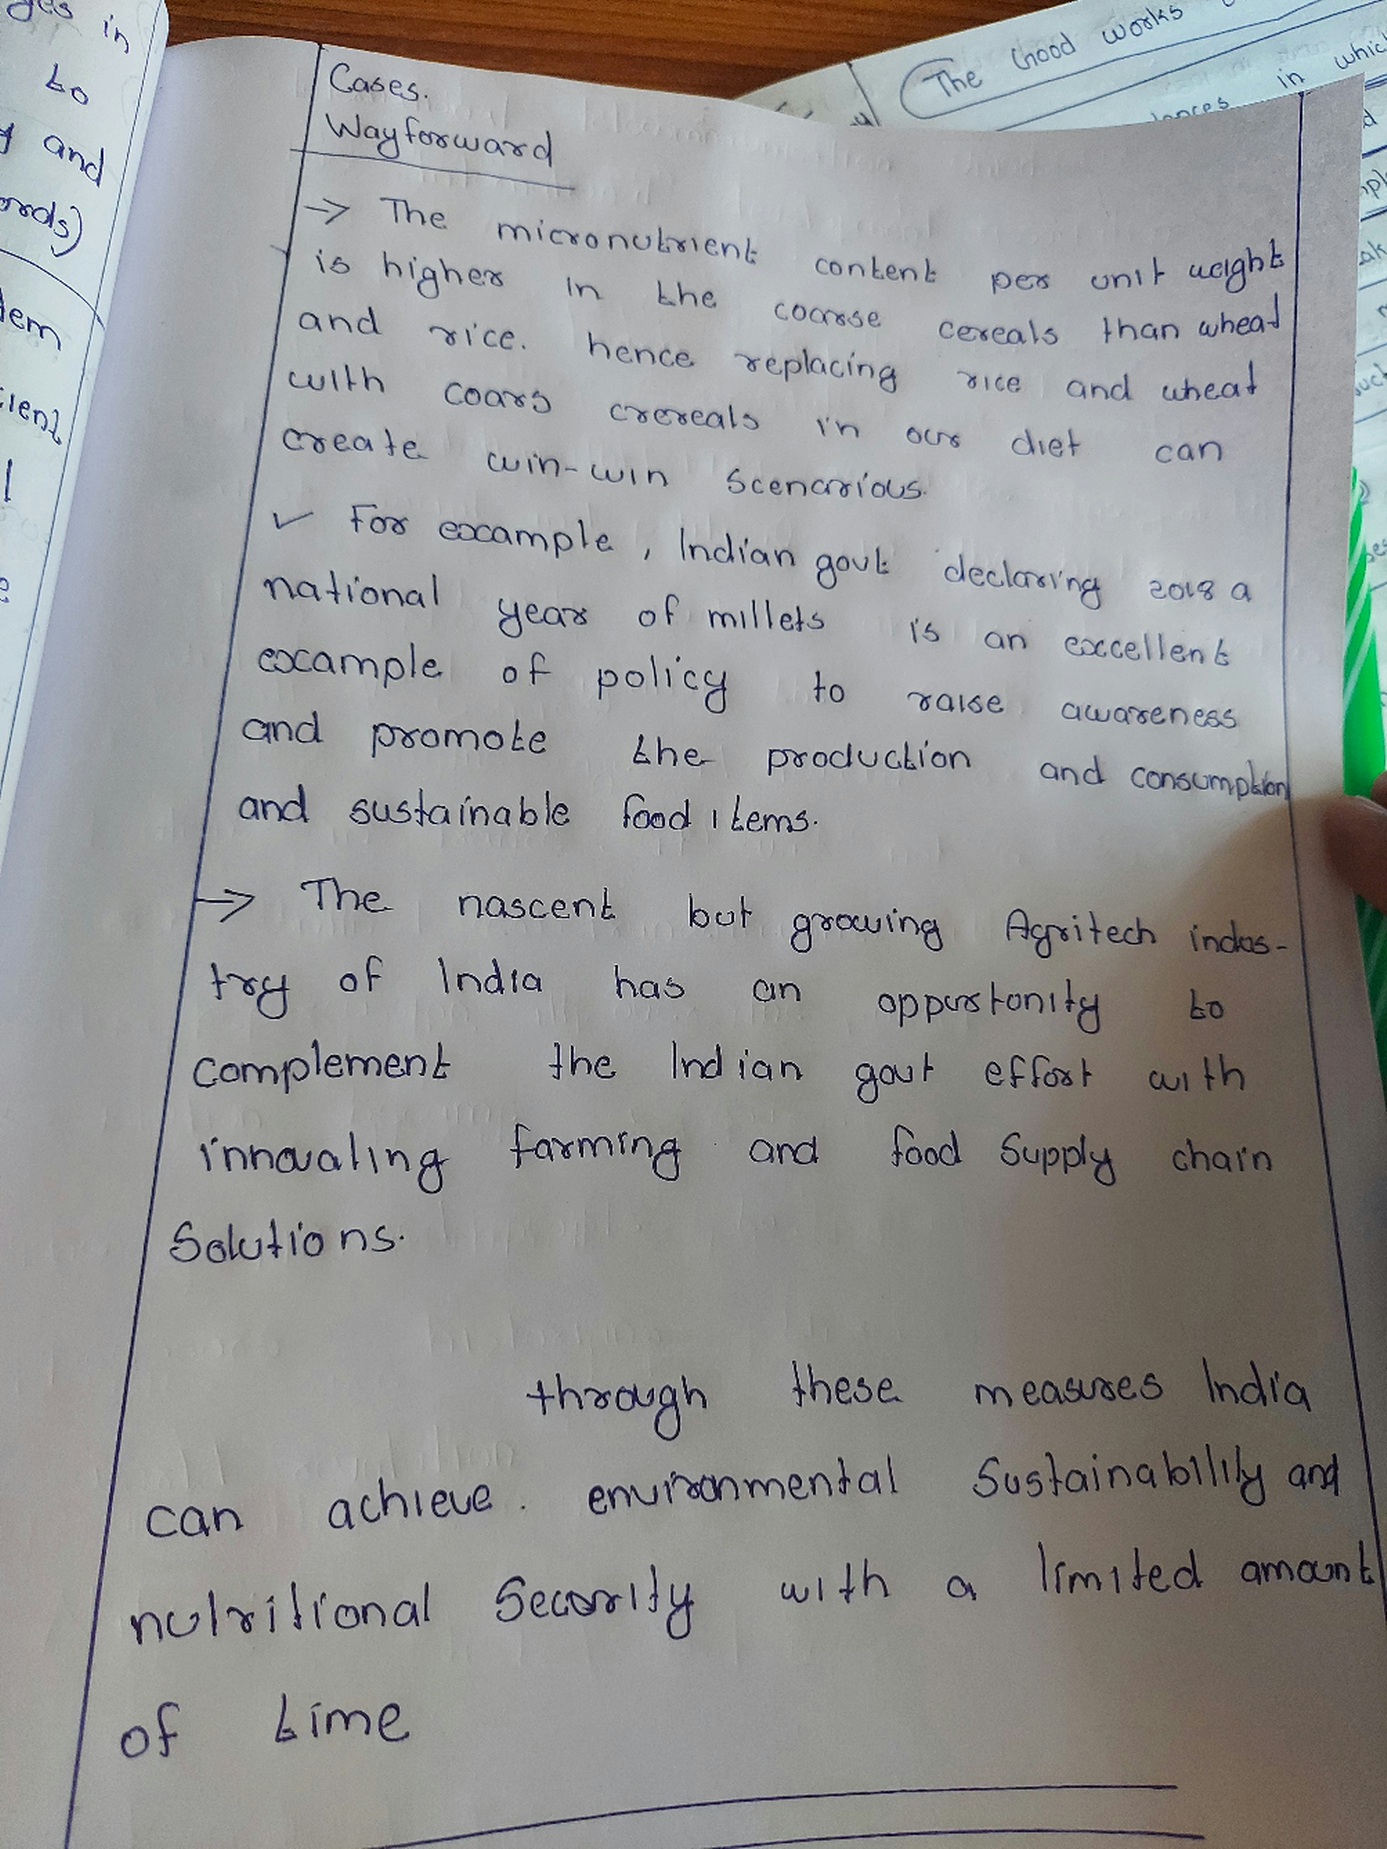 ges in
to
and
ords)
dem
cient
The Good works
in which
Cases.
Wayforward
→ The micronutrient content per unit weight
is higher in the coarse cereals than wheat
and rice. hence replacing rice and wheat
with coars crereals in our diet can
create win-win scenarious.
✓ For example, Indian govt declaring 2018 a
national year of millets is an excellent
example of policy to raise awareness
and promote the production and consumption
and sustainable food items.
→ The nascent but growing Agritech indus-
try of India has an oppurtunity to
complement the Indian govt effort with
innovating farming and food supply chain
Solutions.
through these measures India
can achieve. environmental Sustainability and
nutritional Security with a limited amount
of time